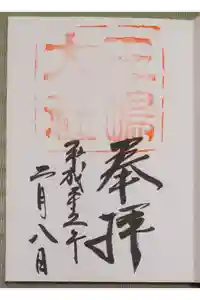 三嶋
大社
奉拝
平成年
二月八日